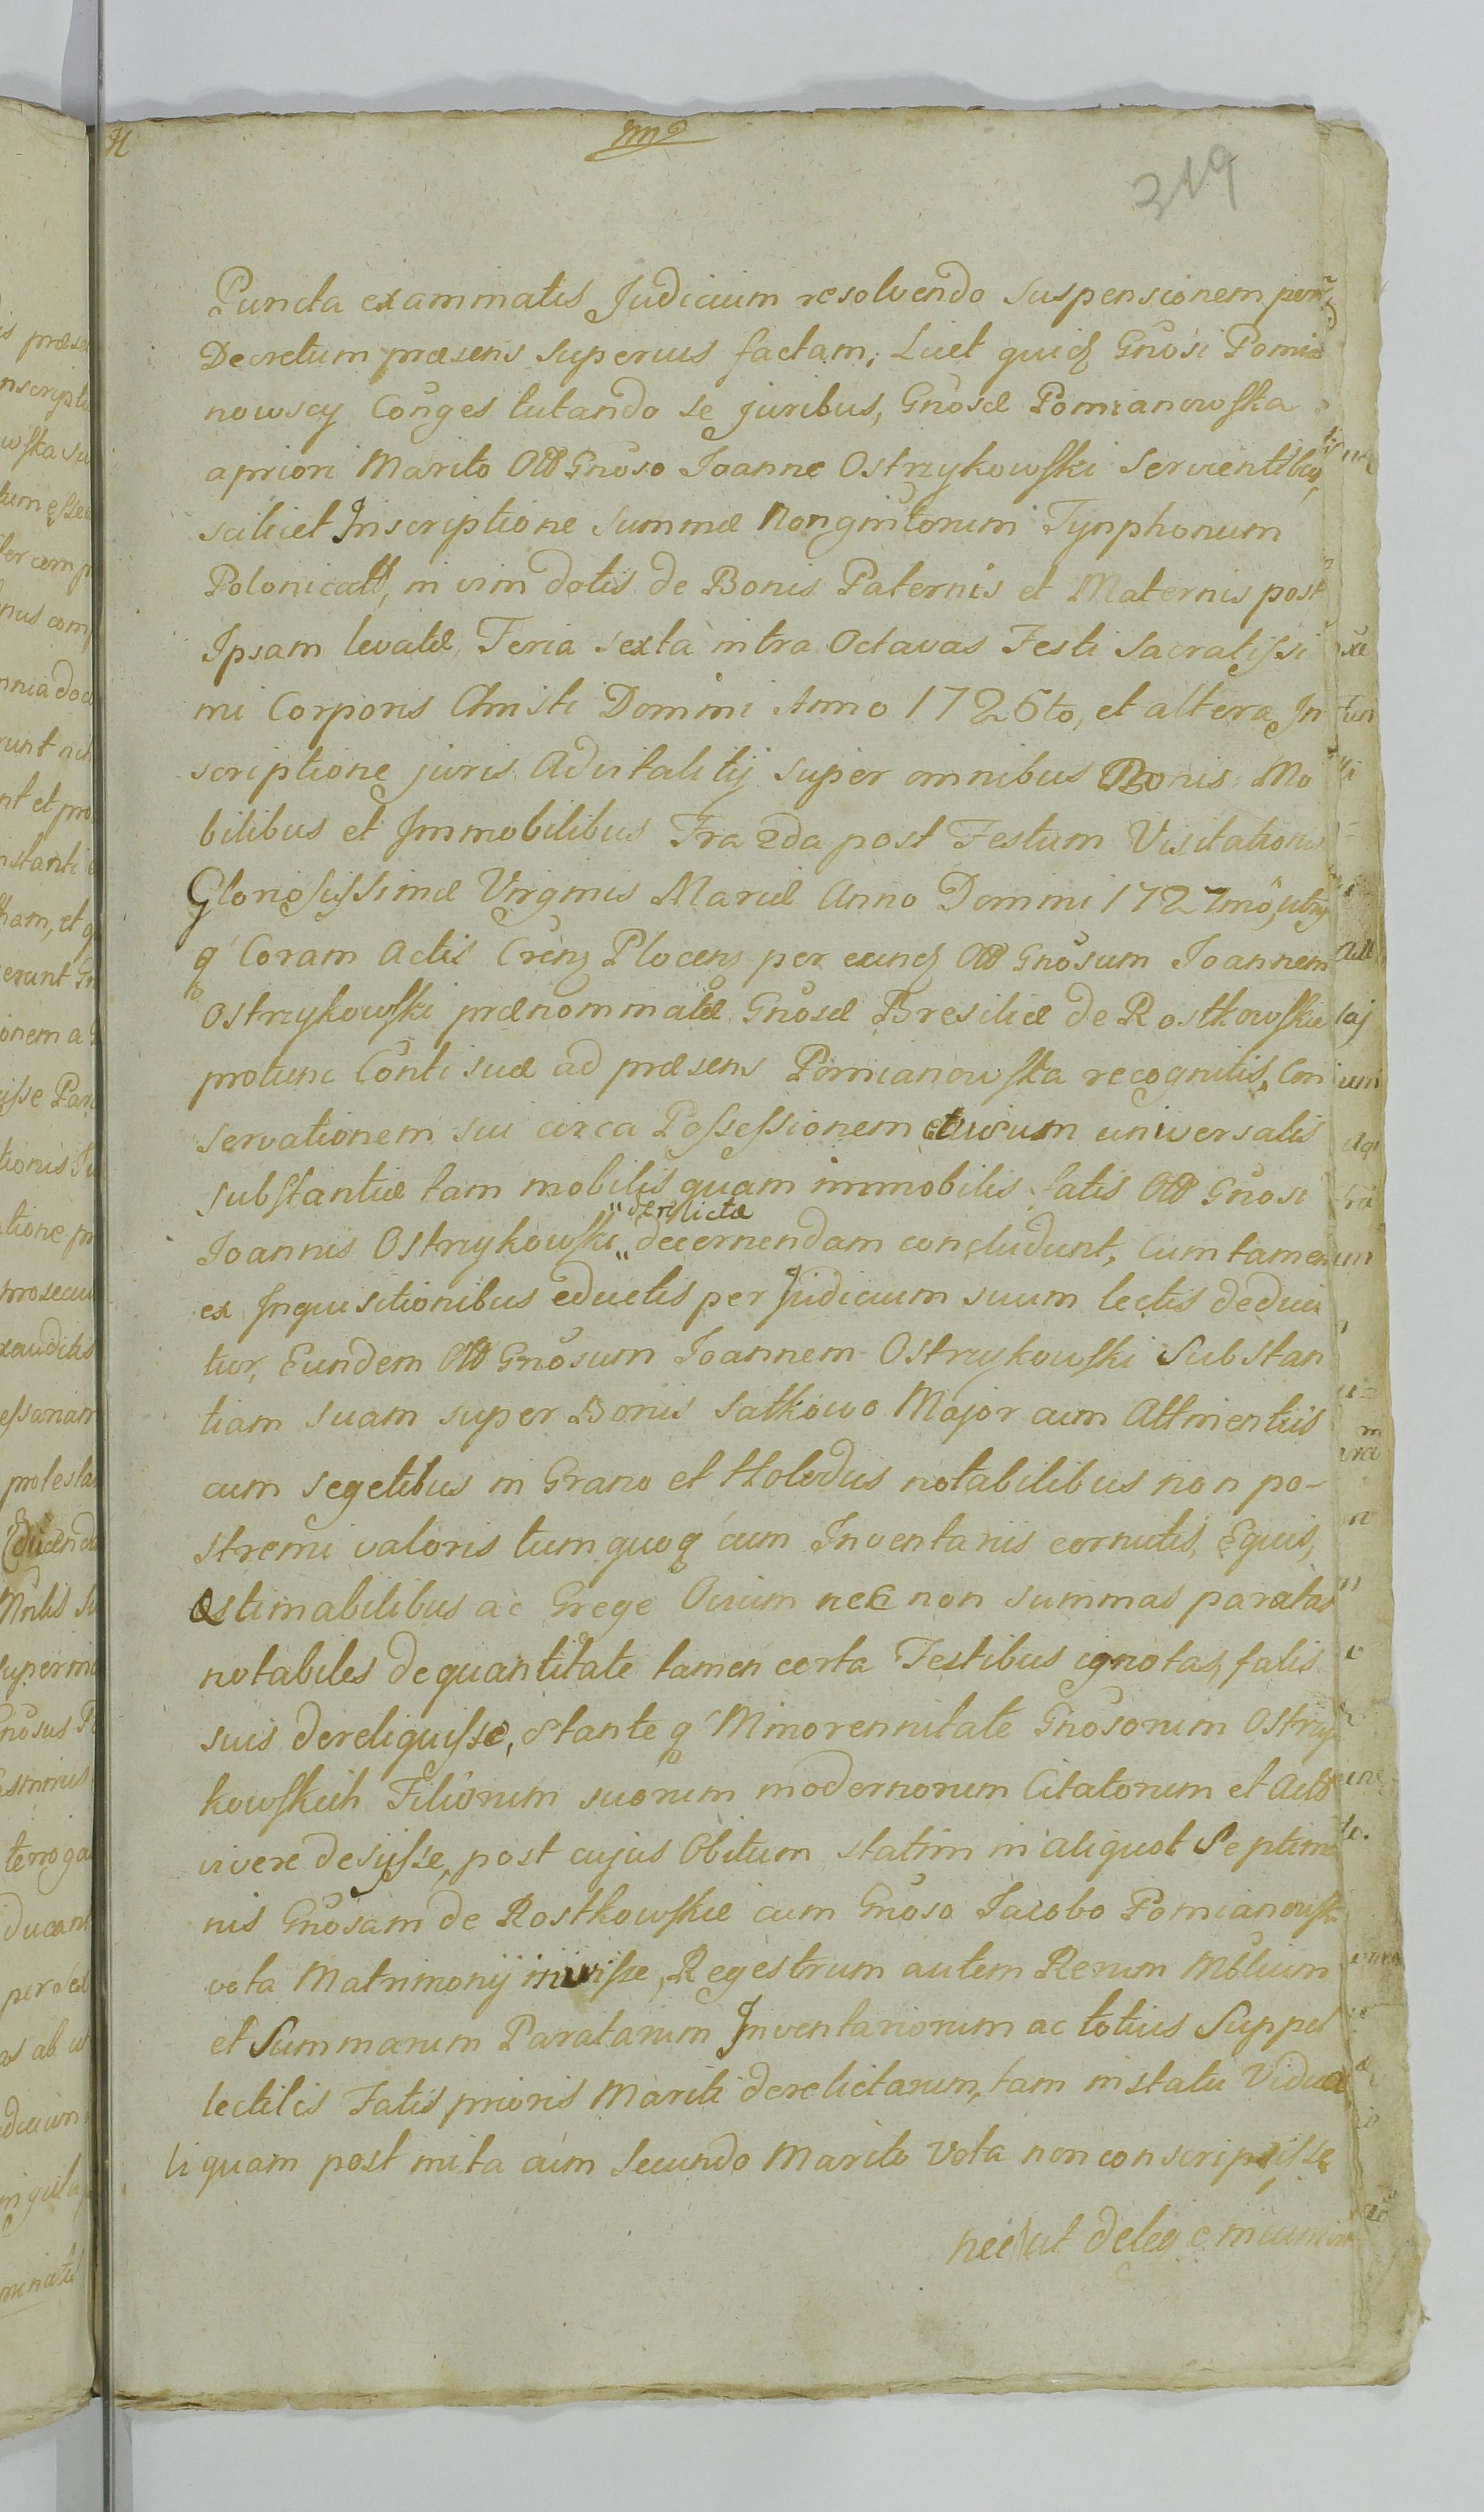 319
Puncta examinatis Judicium resolvendo suspensionem per
Decretum præsens superius factam, Licet quid Gnosi Pomia
nowscy Conges tutando se juribus, Gnosæ Pomianowska
a priori Marito Gnoso Joanne Ostrzykowski servientibus,
scilicet Inscriptione summæ Nongintorum Tynphonum
Polonicall, in vim dotis de Bonis Paternis et Maternis post
Ipsam levatæ, Feria sexta intra Octavas Festi Sacratissi
mi Corporis Christi Domini Anno 1726to, et altera In
scriptione juris Advitalitij super omnibus Bonis Mo
bilibus et Immobilibus Fra 2da post Festum Visitationis
Gloriosissimæ Virginis Mariæ Anno Domini 1727mo,
q Coram Actis Plocens per eund Gnosum Joannem
Ostrzykowski prænominatæ Gnosæ Bresiliæ de Rostkowskie
protunc Conti suæ ad præsens Pomianowska recognitis, Con
servationem sui circa Possessionem universalis
substantiæ tam mobilis quam immobilis fatis Gnosi
derelictæ
Joannis Ostrzykowski decernendam concludunt, Cum tamen
ex Inquisitionibus eductis per Judicium suum lectis deduci
tur, Eundem Gnosum Joannem Ostrzykowski Substan
tiam suam super Bonis Satkowo Major cum Attinentiis
cum segetibus in Grano et Holodus notabilibus non po-
stremi valoris tum quoq cum Inventariis cornutis, Equis,
Æstimabilibus ac Grege Ovium nec non summas paratas
notabiles de quantitate tamen certa Testibus ignotas, fatis
suis dereliquisse, Stante q Minorennitate Gnosorum Ostrzy
kowskich Filiorum suorum modernorum Citatorum et
vivere desijsse, post cujus Obitum statim in aliquot Septima
nis Gnosam de Rostkowskie cum Gnoso Jacobo Pomianowski
vota Matrimonij inivisse, Regestrum autem Rerum Mblium
et Summarum Paratarum Inventariorum ac totius Suppel
lectilis Fatis prioris Mariti derelictarum, tam in statu Vidua
li quam post inita cum Secundo Marito Vota non conscripsisse
nec ut